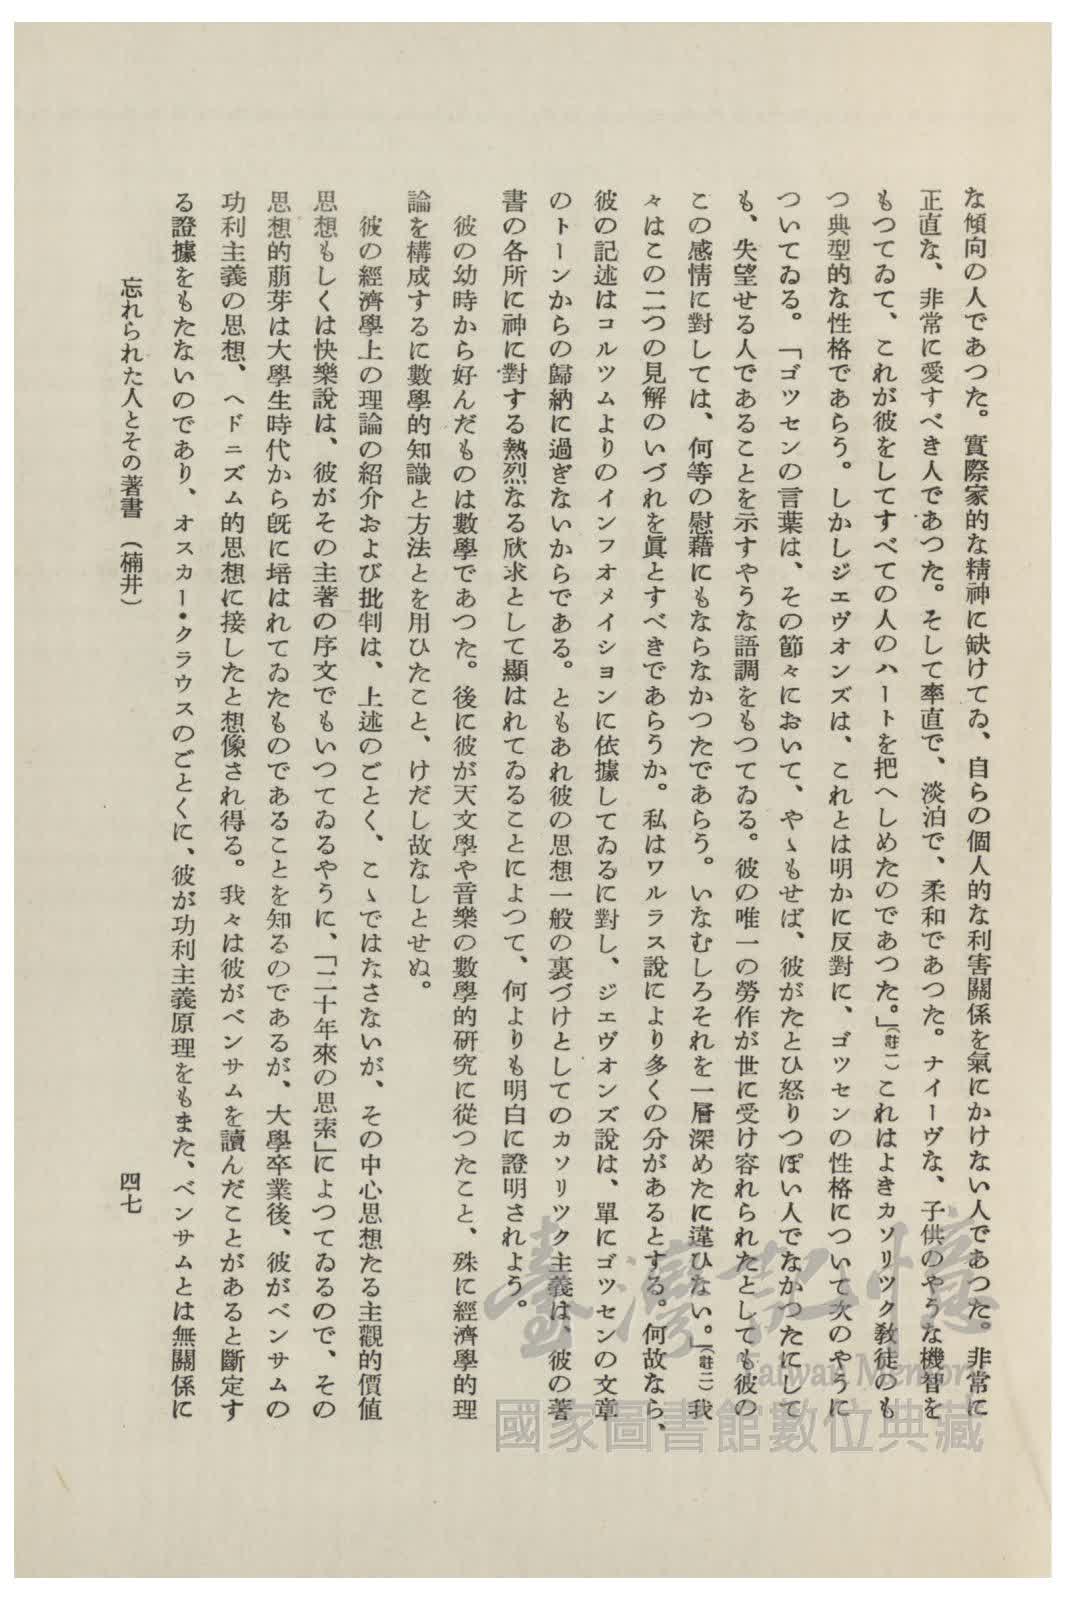 な傾向の人であつた。實際家的な精神に缺けてゐ、自らの個人的な利害關係を氣にかけない人であつた。非常に
正直な、非常に愛すべき人であつた。そして率直で、淡泊で、柔和であつた。ナイーヴな、子供のやうな機智を
もつてゐて、これが彼をしてすべての人のハートを把へしめたのであつた。」(註一)これはよきカソリツク敎徒のも
つ典型的な性格であらう。しかしジエヴオンズは、これとは明かに反對に、ゴツセンの性格について次のやうに
ついてゐる。「ゴツセンの言葉は、その節々において、やゝもせば、彼がたとひ怒りつぽい人でなかつたにして
も、失望せる人であることを示すやうな語調をもつてゐる。彼の唯一の勞作が世に受け容れられたとしても彼の
この感情に對しては、何等の慰藉にもならなかつたであらう。いなむしろそれを一層深めたに違ひない。」(註二)我
々はこの二つの見解のいづれを眞とすべきであらうか。私はワルラス說により多くの分があるとする。何故なら、
彼の記述はコルツムよりのインフオメイシヨンに依據してゐるに對し、ジエヴオンズ說は、單にゴツセンの文章
のトーンからの歸納に過ぎないからである。ともあれ彼の思想一般の裏づけとしてのカソリツク主義は、彼の著
書の各所に神に對する熱烈なる欣求として顯はれてゐることによつて、何よりも明白に證明されよう。
彼の幼時から好んだものは數學であつた。後に彼が天文學や音樂の數學的硏究に從つたこと、殊に經濟學的理
論を構成するに數學的知識と方法とを用ひたこと、けだし故なしとせぬ。
彼の經濟學上の理論の紹介および批判は、上述のごとく、こゝではなさないが、その中心思想たる主觀的價値
思想もしくは快樂說は、彼がその主著の序文でもいつてゐるやうに、「二十年來の思索」によつてゐるので、その
思想的萠芽は大學生時代から旣に培はれてゐたものであることを知るのであるが、大學卒業後、彼がベンサムの
功利主義の思想、ヘドニズム的思想に接したと想像され得る。我々は彼がベンサムを讀んだことがあると斷定す
る證據をもたないのであり、オスカー・クラウスのごとくに、彼が功利主義原理をもまた、ベンサムとは無關係に
忘れられた人とその著書(楠井)
四七
臺灣記憶
Taiwan Memory
國家圖書館數位典藏